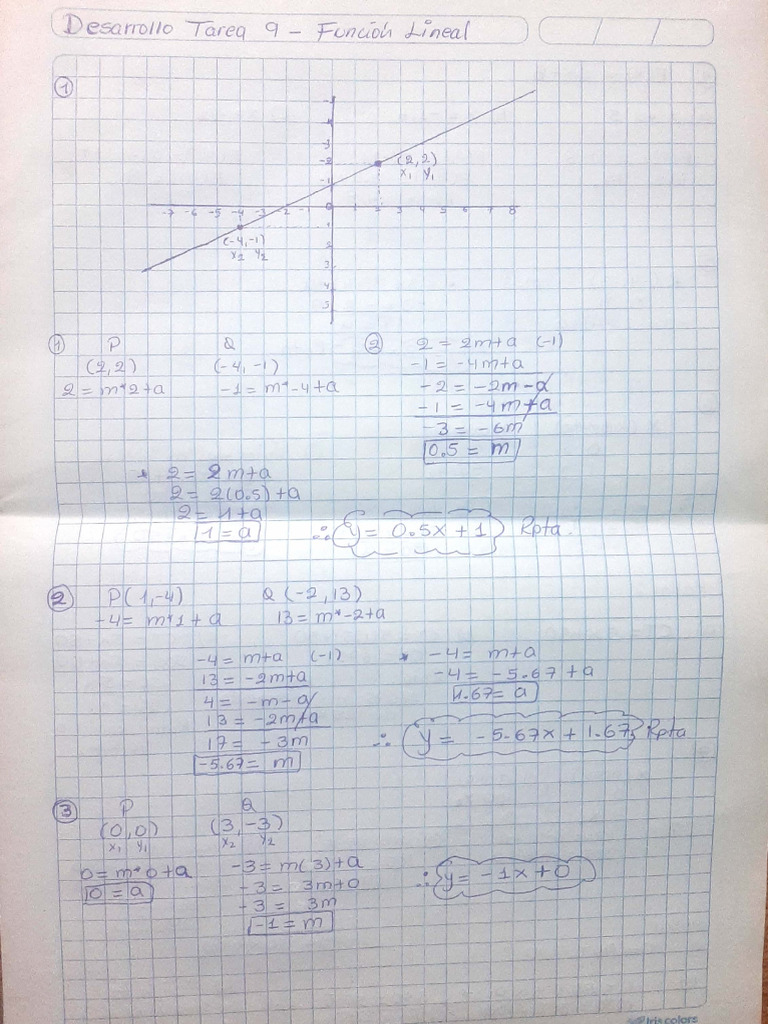 Desarrollo Tarea 9 - Función Lineal
①
-5
-4
-3
-2
(2,2)
x₁ y₁
-1
-7 -6 -5 -4 -3 -2 -1 0 1 2 3 4 5 6 7 8
1
(-4,-1)
x₂ y₂
2
3
4
5
① P Q
(2,2) (-4,-1)
2 = m*2+a -1 = m*-4+a
② 2 = 2m+a (-1)
-1 = -4m+a
-2 = -2m-a
-1 = -4m+a
-3 = -6m
0.5 = m
* 2 = 2m+a
2 = 2(0.5)+a
2 = 1+a
1 = a
∴ y = 0.5x+1 Rpta.
② P(1,-4) Q(-2,13)
-4 = m*1+a 13 = m*-2+a
-4 = m+a (-1)
13 = -2m+a
4 = -m-a
13 = -2m+a
17 = -3m
-5.67 = m
* -4 = m+a
-4 = -5.67+a
1.67 = a
∴ y = -5.67x+1.67 Rpta
③ P Q
(0,0) (3,-3)
x₁ y₁ x₂ y₂
0 = m*0+a
0 = a
-3 = m(3)+a
-3 = 3m+0
-3 = 3m
-1 = m
∴ y = -1x+0
Iriscolors